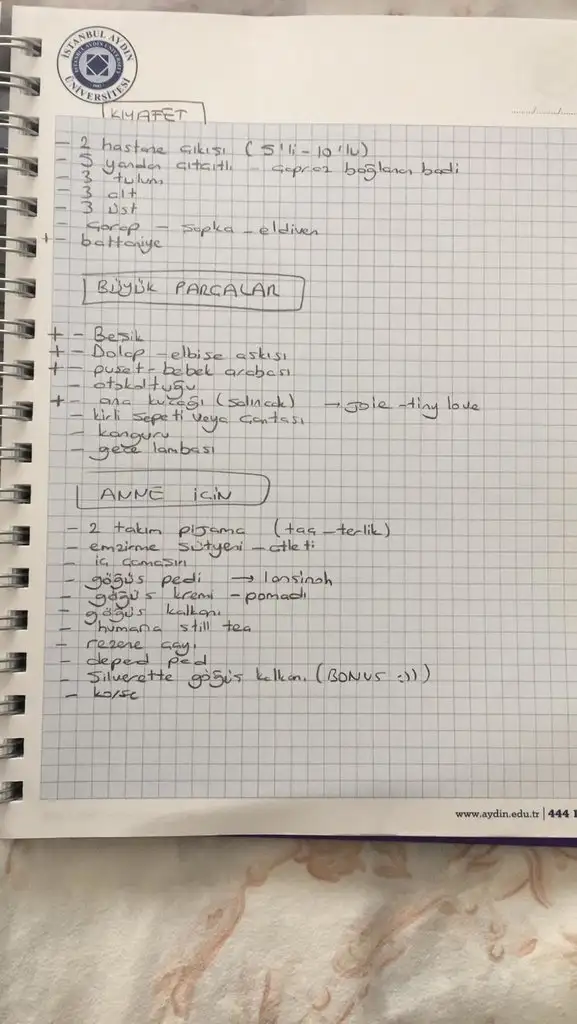 İSTANBUL AYDIN ÜNİVERSİTESİ
KIYAFET
- 2 hastane çıkışı (5'li - 10'lu)
- 5 yandan çıtçıtlı - çapraz bağlanan badi
- 3 tulum
- 3 alt
- 3 üst
- çorap - şapka - eldiven
+ - battaniye
BÜYÜK PARÇALAR
+ - Beşik
+ - Dolap - elbise askısı
+ - puset - bebek arabası
- otokoltuğu
+ - ana kucağı (salıncak) → joie - tiny love
- kirli sepeti veya çantası
- kanguru
- gece lambası
ANNE İÇİN
- 2 takım pijama (taç - terlik)
- emzirme sütyeni - atleti
- iç çamaşırı
- göğüs pedi → lansinoh
- göğüs kremi - pomadı
- göğüs kalkanı
- humana still tea
- rezene çayı
- deped ped
- Silverette göğüs kalkanı (BONUS :))
- korse
www.aydin.edu.tr | 444 1